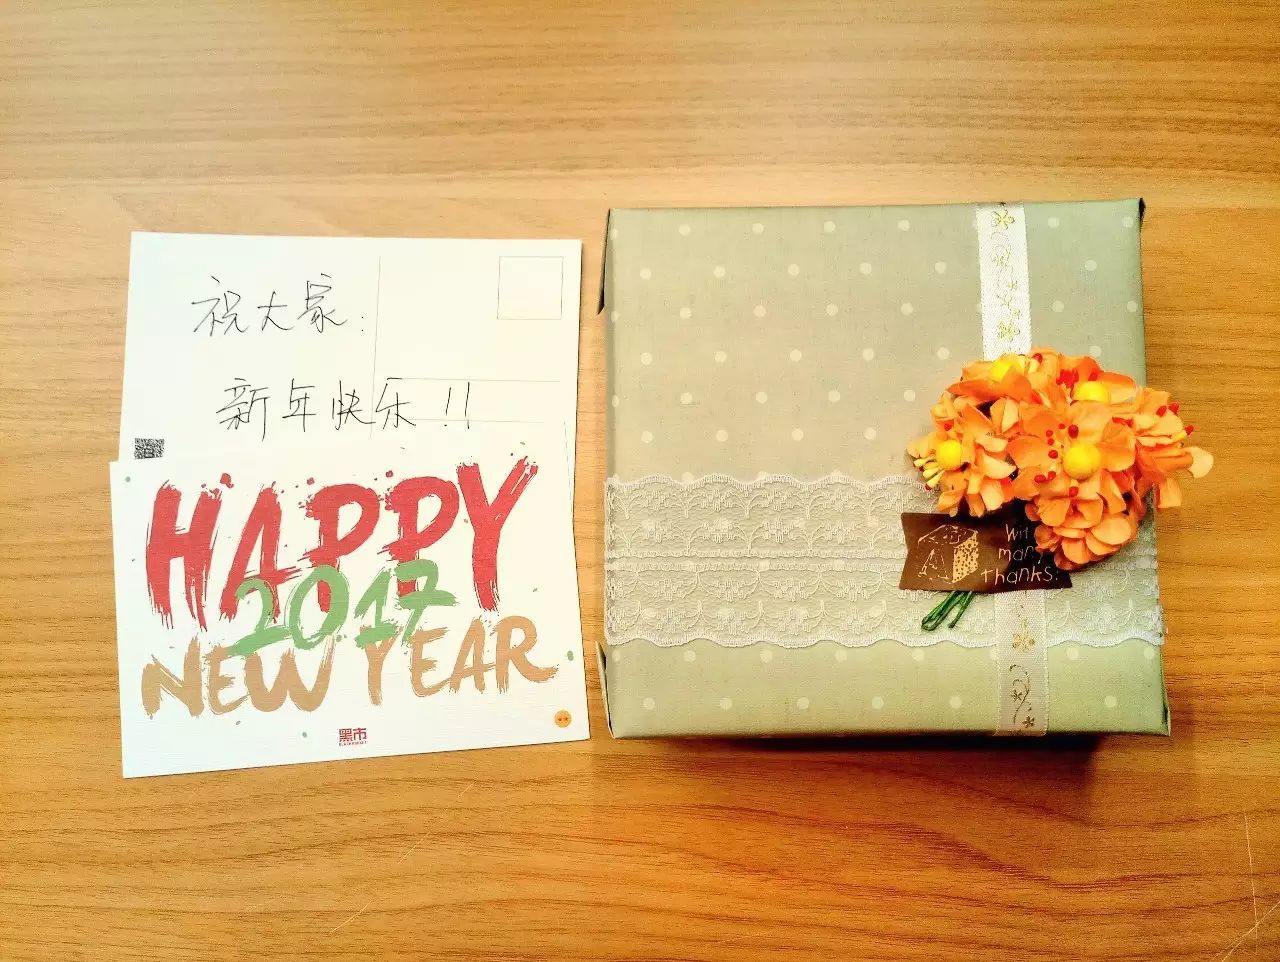 祝大家:
新年快乐!!
HAPPY
2017
NEW YEAR
黑市
many
thanks.